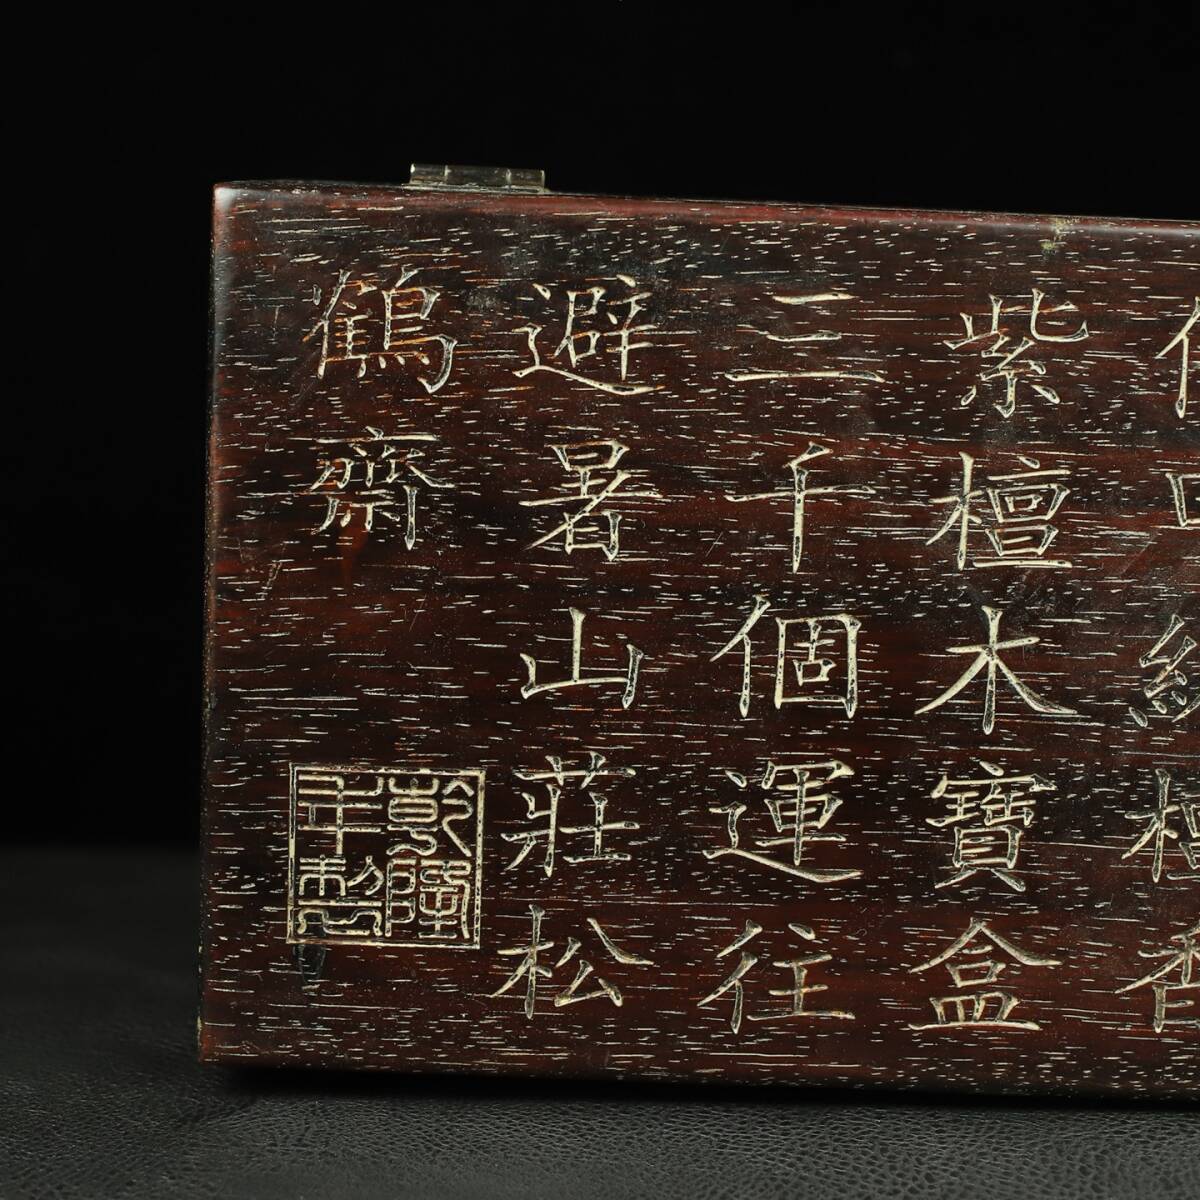 紫檀木寶盒
三千個運往
避暑山莊松
鶴齋
乾隆
年製